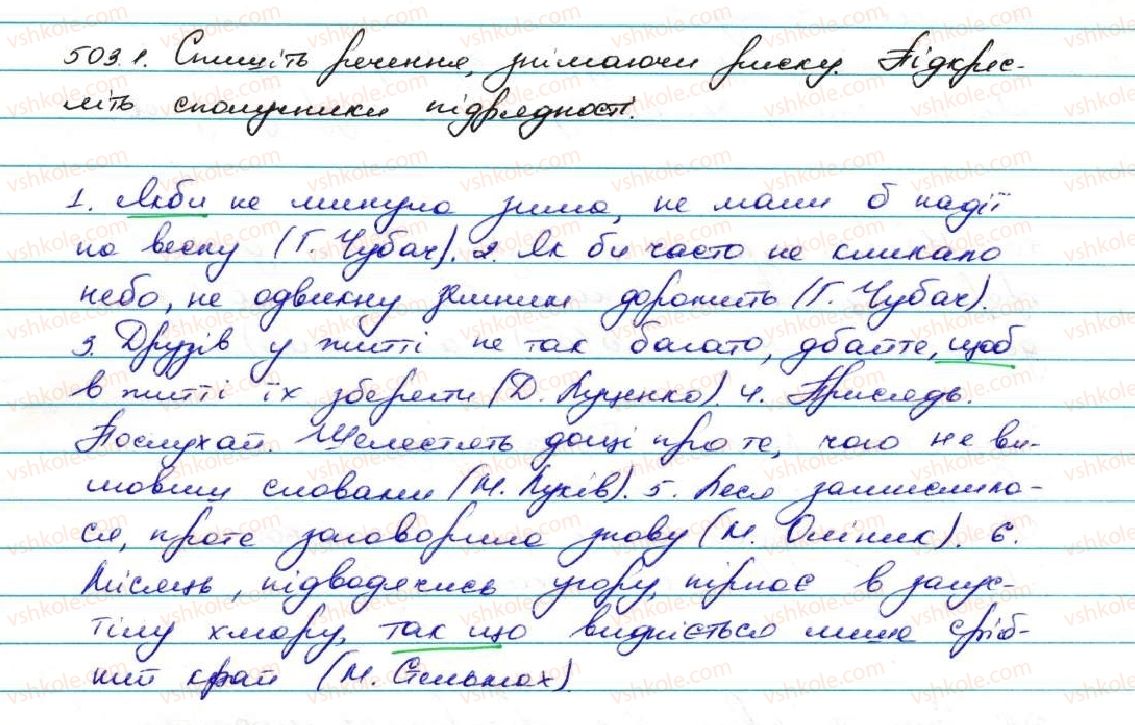 503.1. Спишіть речення, знімаючи риску. Підкрес-
літь сполучники підрядності.
1. Якби не минула зима, не мали б надії
на весну (Г. Чубач). 2. Як би часто не кликало
небо, не одвикну земних доріг (Г. Чубач).
3. Друзів у житті не так багато, дбайте, щоб
в житті їх зберегти (Д. Луценко). 4. Присядь.
Послухай. Шелестять дощі про те, чого не ви-
мовиш словами (М. Луків). 5. Леся замислила-
ся, проте заговорила знову (М. Олійник). 6.
Місяць, підводячись угору, пірнає в запус-
тілу хмару, так що видніється лише сріб-
ний край (М. Стельмах).